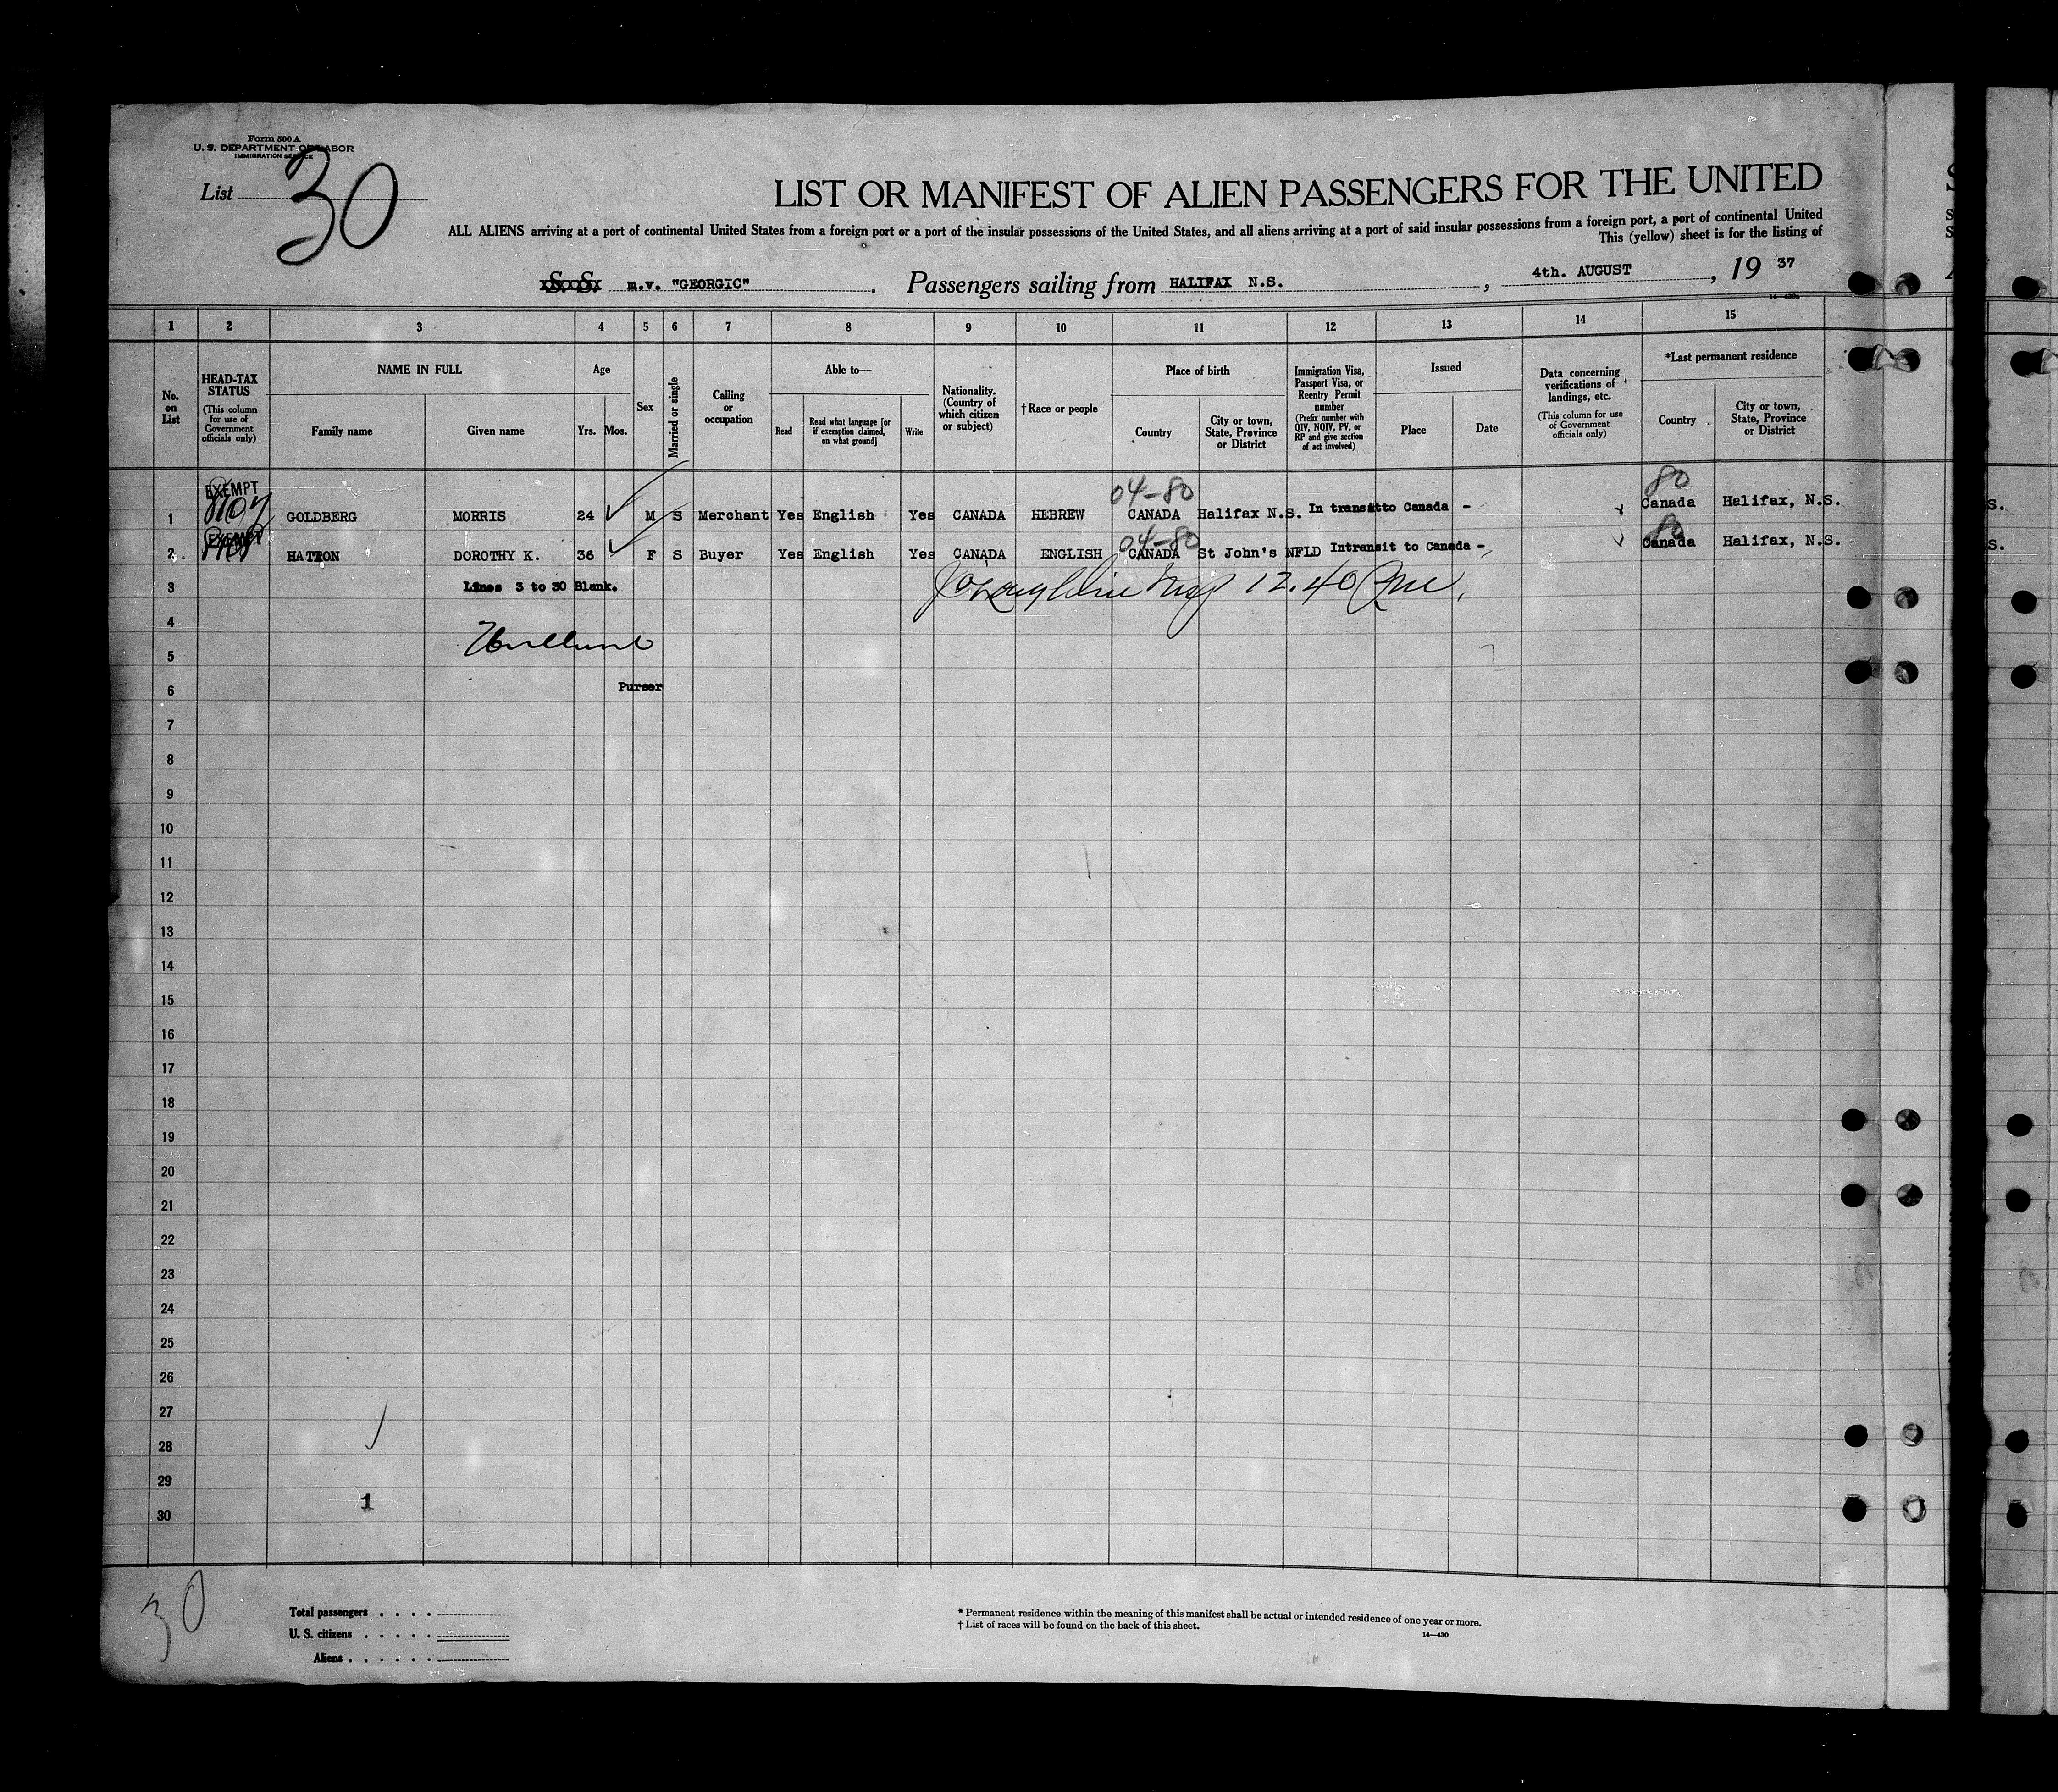 Form 500 A
U. S. DEPARTMENT OF LABOR
IMMIGRATION SERVICE
List 30
LIST OR MANIFEST OF ALIEN PASSENGERS FOR THE UNITED
ALL ALIENS arriving at a port of continental United States from a foreign port or a port of the insular possessions of the United States, and all aliens arriving at a port of said insular possessions from a foreign port, a port of continental United
This (yellow) sheet is for the listing of
S. S. m.v. "GEORGIC". Passengers sailing from HALIFAX N.S., 4th. AUGUST, 19 37
1 2 3 4 5 6 7 8 9 10 11 12 13 14 15
No. on List
HEAD-TAX STATUS (This column for use of Government officials only)
NAME IN FULL
Family name
Given name
Age
Yrs. Mos.
Sex
Married or single
Calling or occupation
Able to—
Read
Read what language [or if exemption claimed, on what ground]
Write
Nationality. (Country of which citizen or subject)
†Race or people
Place of birth
Country
City or town, State, Province or District
Immigration Visa, Passport Visa, or Reentry Permit number (Prefix number with QIV, NQIV, PV, or RP and give section of act involved)
Issued
Place
Date
Data concerning verifications of landings, etc. (This column for use of Government officials only)
*Last permanent residence
Country
City or town, State, Province or District
EXEMPT 04-80 80
1 GOLDBERG MORRIS 24 M S Merchant Yes English Yes CANADA HEBREW CANADA Halifax N.S. In transit to Canada - Canada Halifax, N.S.
EXEMPT 04-80 80
2 HATTON DOROTHY K. 36 F S Buyer Yes English Yes CANADA ENGLISH CANADA St John's NFLD Intransit to Canada - Canada Halifax, N.S.
3 Lines 3 to 30 Blank. 12.40
4
5
6 Purser
7
8
9
10
11
12
13
14
15
16
17
18
19
20
21
22
23
24
25
26
27
28
29
1
30
30
Total passengers
U. S. citizens
Aliens
* Permanent residence within the meaning of this manifest shall be actual or intended residence of one year or more.
† List of races will be found on the back of this sheet.
14—430